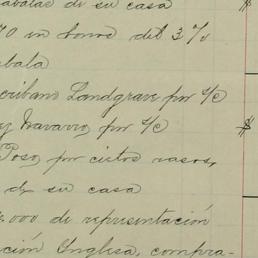 abalas de su casa $
70 in bonos del 3%
abala
cribano Landgrave por s/c
y Navarro, por s/c $
Poso, por cietos vasos,
de su casa
.000 de representación
ción Inglesa, compra-